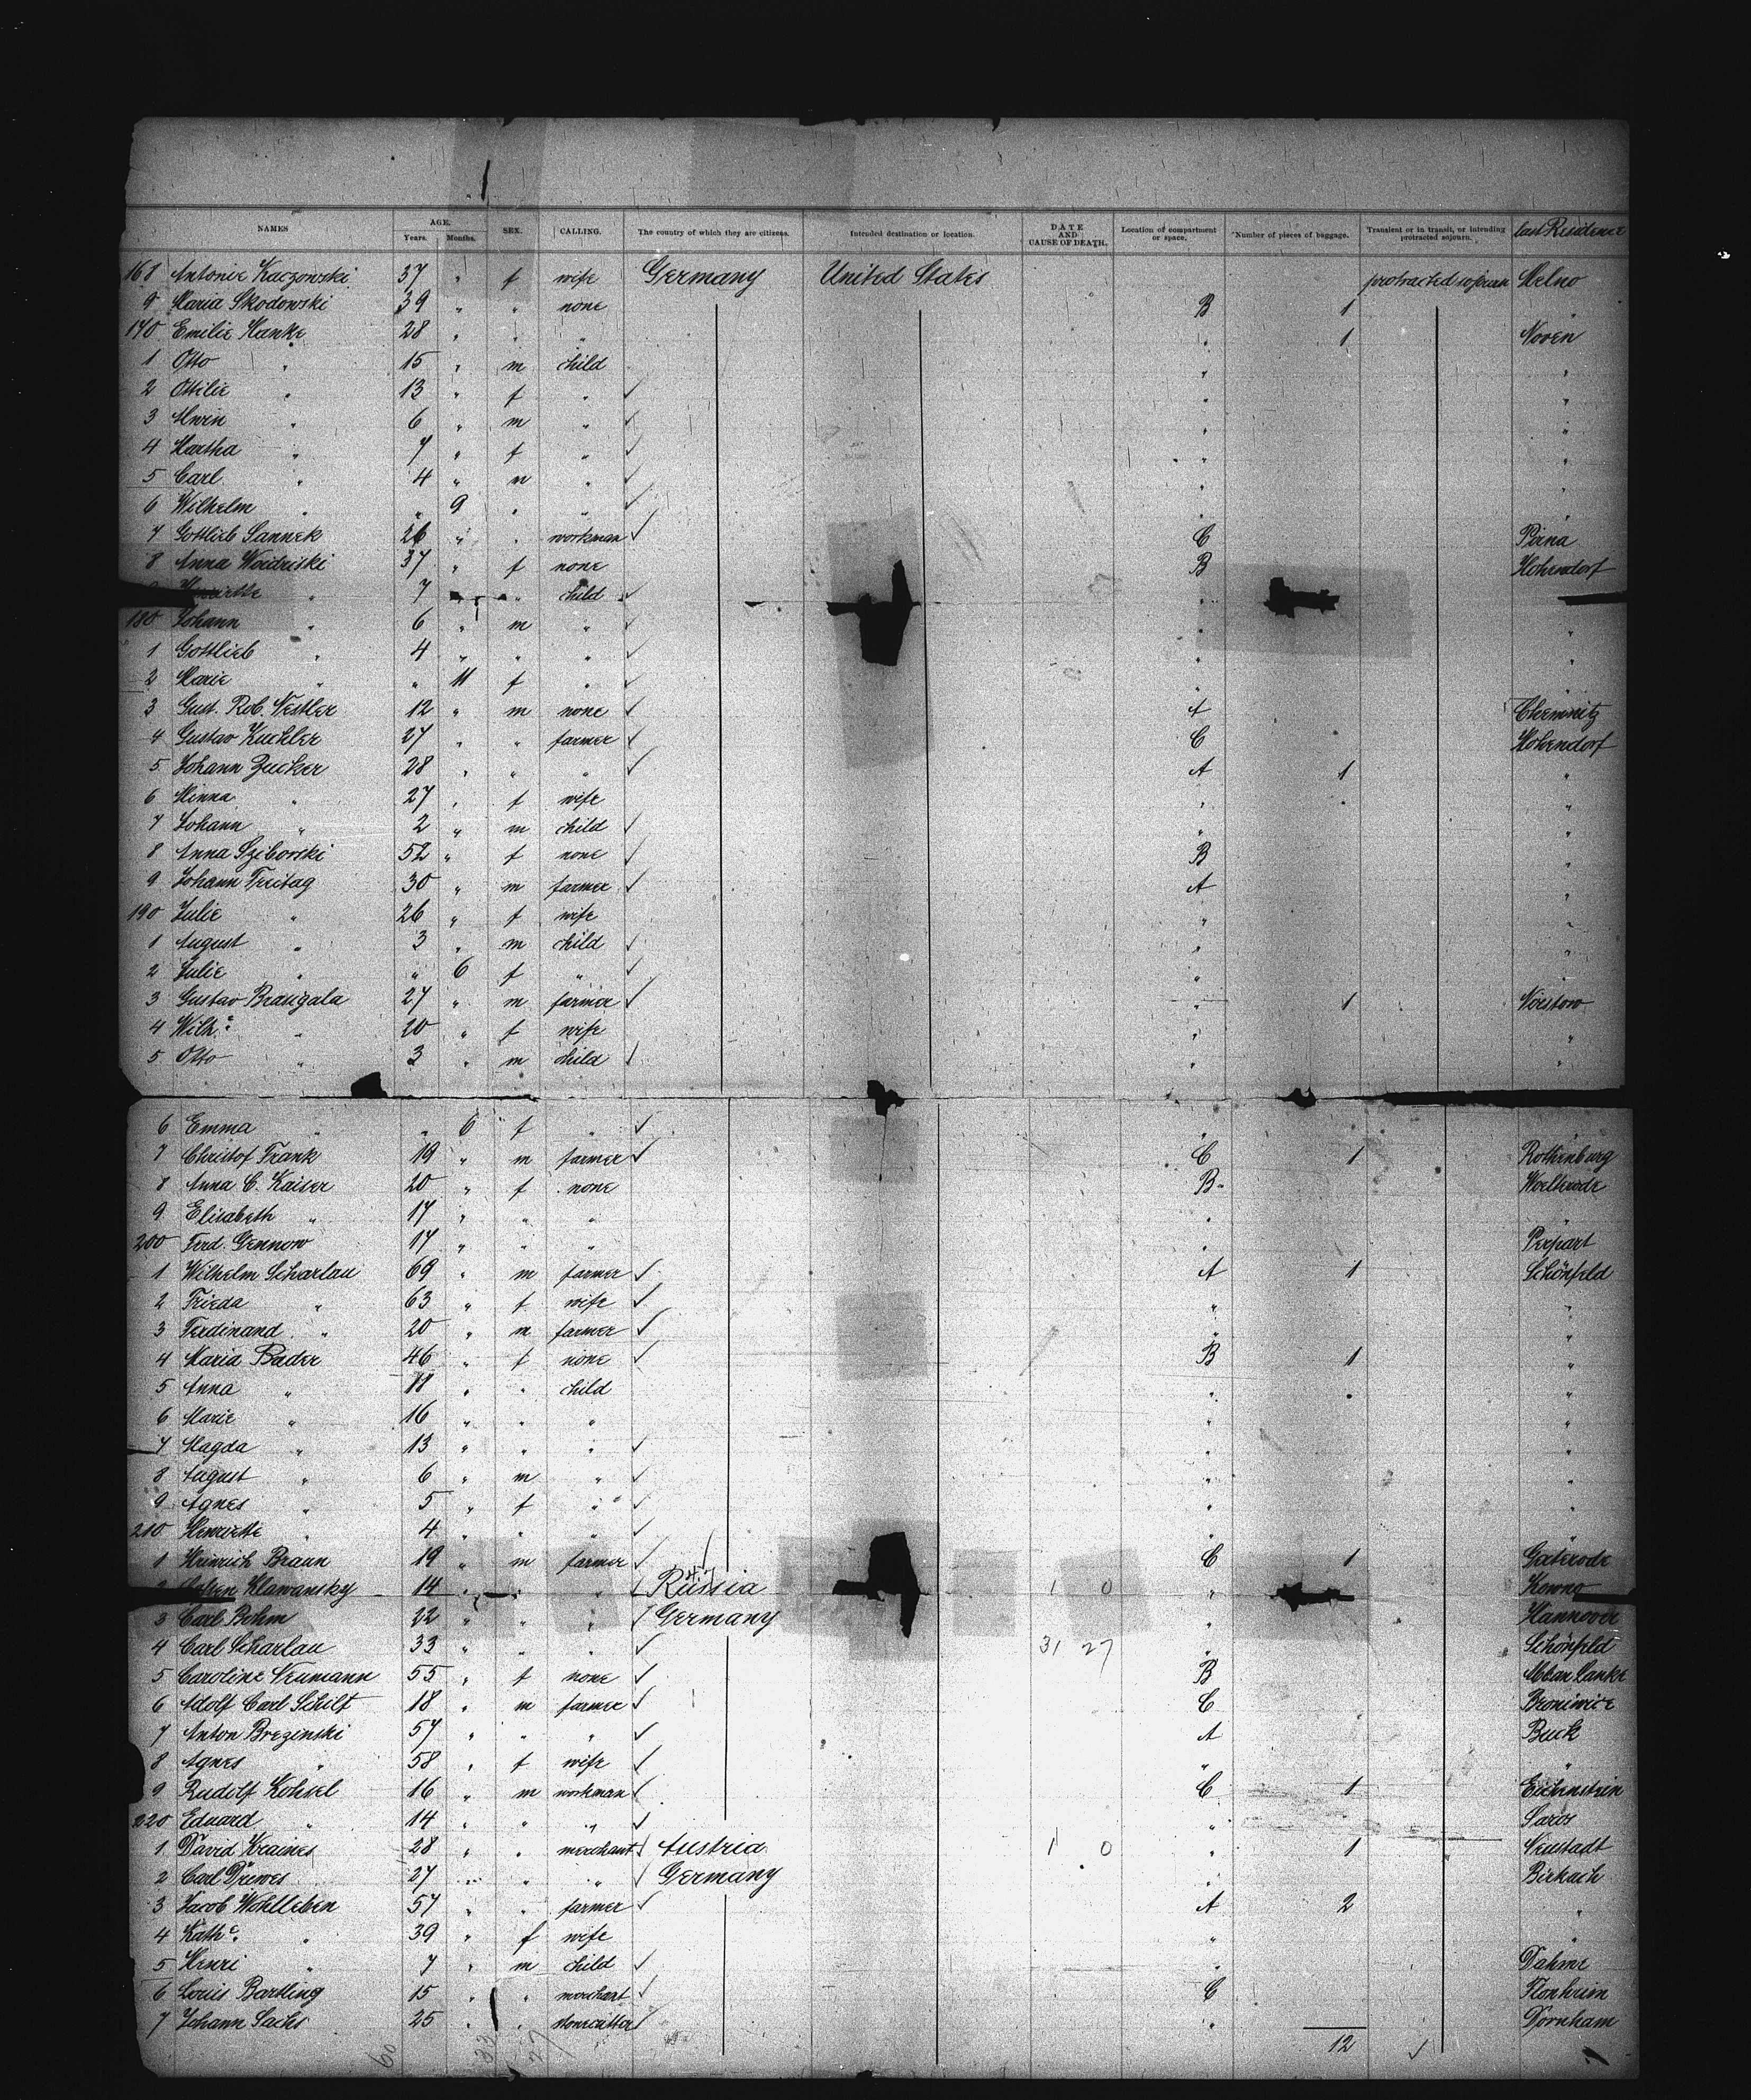 NAMES AGE. Years. Months. SEX. CALLING. The country of which they are citizens. Intended destination or location. DATE AND CAUSE OF DEATH. Location of compartment or space. Number of pieces of baggage. Transient or in transit, or intending protracted sojourn. last Residence
168 Antonie Kaczowski 37 " f wife Germany United States protracted sojourn Melno
9 Maria Skodowski 39 " " none B 1 "
170 Emilie Hanke 28 " " " " 1 Noven
1 Otto " 15 " m child " "
2 Ottilie " 13 " f " ✓ " "
3 " 6 " m " ✓ " "
4 Martha " 7 " f " ✓ " "
5 Carl " 4 " m " ✓ " "
6 Wilhelm " " 9 " " ✓ " "
7 Gottlieb Sannek 26 " " workman ✓ C Pirna
8 Anna Woidriski 37 " f none B Hohendorf
Henriette " 7 " " child ✓ "
180 Johann " 6 " m " ✓ " "
1 Gottlieb " 4 " " " ✓ " "
2 Marie " " 11 f " ✓ " "
3 Gust. Rob. Nestler 12 " m none ✓ A Chemnitz
4 Gustav Kuchler 27 " " farmer ✓ C Hohendorf
5 Johann Zucker 28 " " " ✓ A 1 "
6 Minna " 27 " f wife " "
7 Johann " 2 " m child ✓ " "
8 Anna Sziborski 52 " f none ✓ B "
9 Johann Freitag 30 " m farmer ✓ A "
190 Julie " 26 " f wife " "
1 August " 3 " m child ✓ " "
2 Julie " " 6 f " ✓ " "
3 Gustav Braugala 27 " m farmer ✓ " 1
4 Wilh.e " 20 " f wife " "
5 Otto " 3 " m child ✓ " "
6 Emma " " 6 f " ✓ " "
7 Christof Frank 19 " m farmer ✓ C 1 Rothenburg
8 Anna C. Kaiser 20 " f none B
9 Elisabeth " 17 " " " " "
200 Ferd. Gennow 17 " " " " Perpart
1 Wilhelm Scharlau 69 " m farmer ✓ A 1 Schönfeld
2 Frieda " 63 " f wife ✓ " "
3 Ferdinand " 20 " m farmer ✓ " "
4 Maria Bader 46 " f none ✓ B 1 "
5 Anna " 18 " " child " "
6 Marie " 16 " " " " "
7 Magda " 13 " " " ✓ " "
8 August " 6 " m " ✓ " "
9 Agnes " 5 " f " ✓ " "
210 Henriette " 4 " " " ✓ " "
1 Heinrich Braun 19 " m farmer ✓ C 1
Klawansky 14 " " " ✓ Russia 1 0 " Kowno
3 Carl Bohm 22 " " " ✓ Germany " Hannover
4 Carl Scharlau 33 " " " ✓ 31 27 " Schönfeld
5 Caroline Neumann 55 " f none ✓ B
6 Adolf Carl Schilf 18 " m farmer ✓ C
7 Anton Brezinski 57 " " " ✓ A Buck
8 Agnes " 58 " f wife ✓ " "
9 Rudolf 16 " m workman ✓ C 1 Eichenstein
220 Eduard " 14 " " " ✓ " Saros
1 David Kraines 28 " " merchant ✓ Austria 1 0 " 1 Neustadt
2 Carl Drewes 27 " " " ✓ Germany " Birkach
3 Jacob Wohlleben 57 " " farmer ✓ A 2 "
4 Kath.e " 39 " f wife " "
5 Henri " 7 " m child ✓ " Dahme
6 Louis Bartling 15 " " merchant ✓ C Flonheim
7 Johann Sachs 25 " " stonecutter ✓ " Dornham
12 ✓
60 33 27